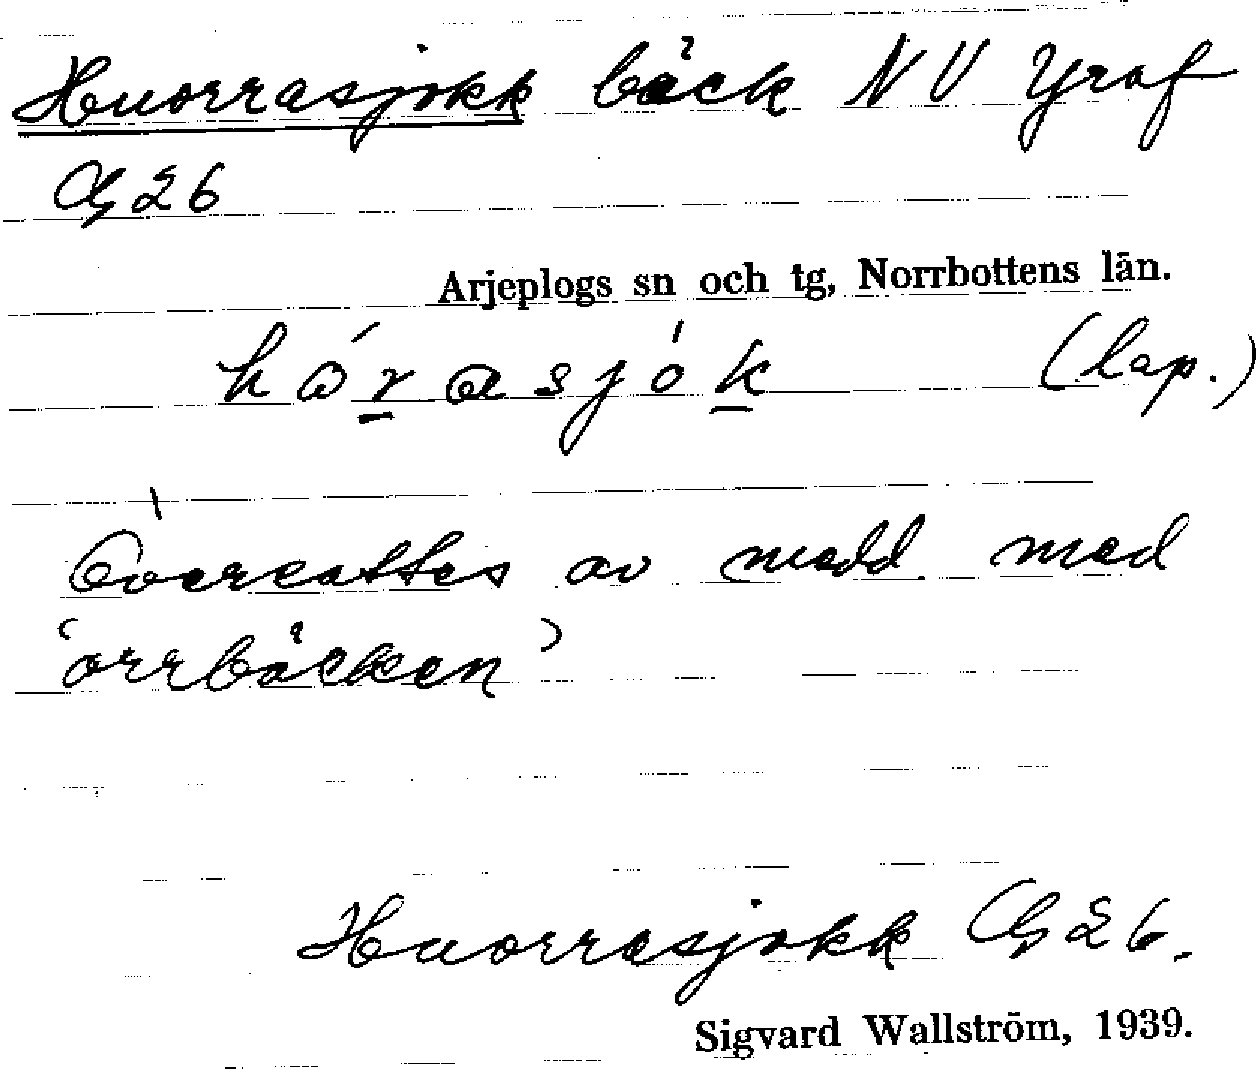 Huorrasjokk bäck NV Yraf
G26
Arjeplogs sn och tg, Norrbottens län.
hórasjók (lap.)
Översättes av medd med
'orrbäcken'
Huorrasjokk G26.
Sigvard Wallström, 1939.